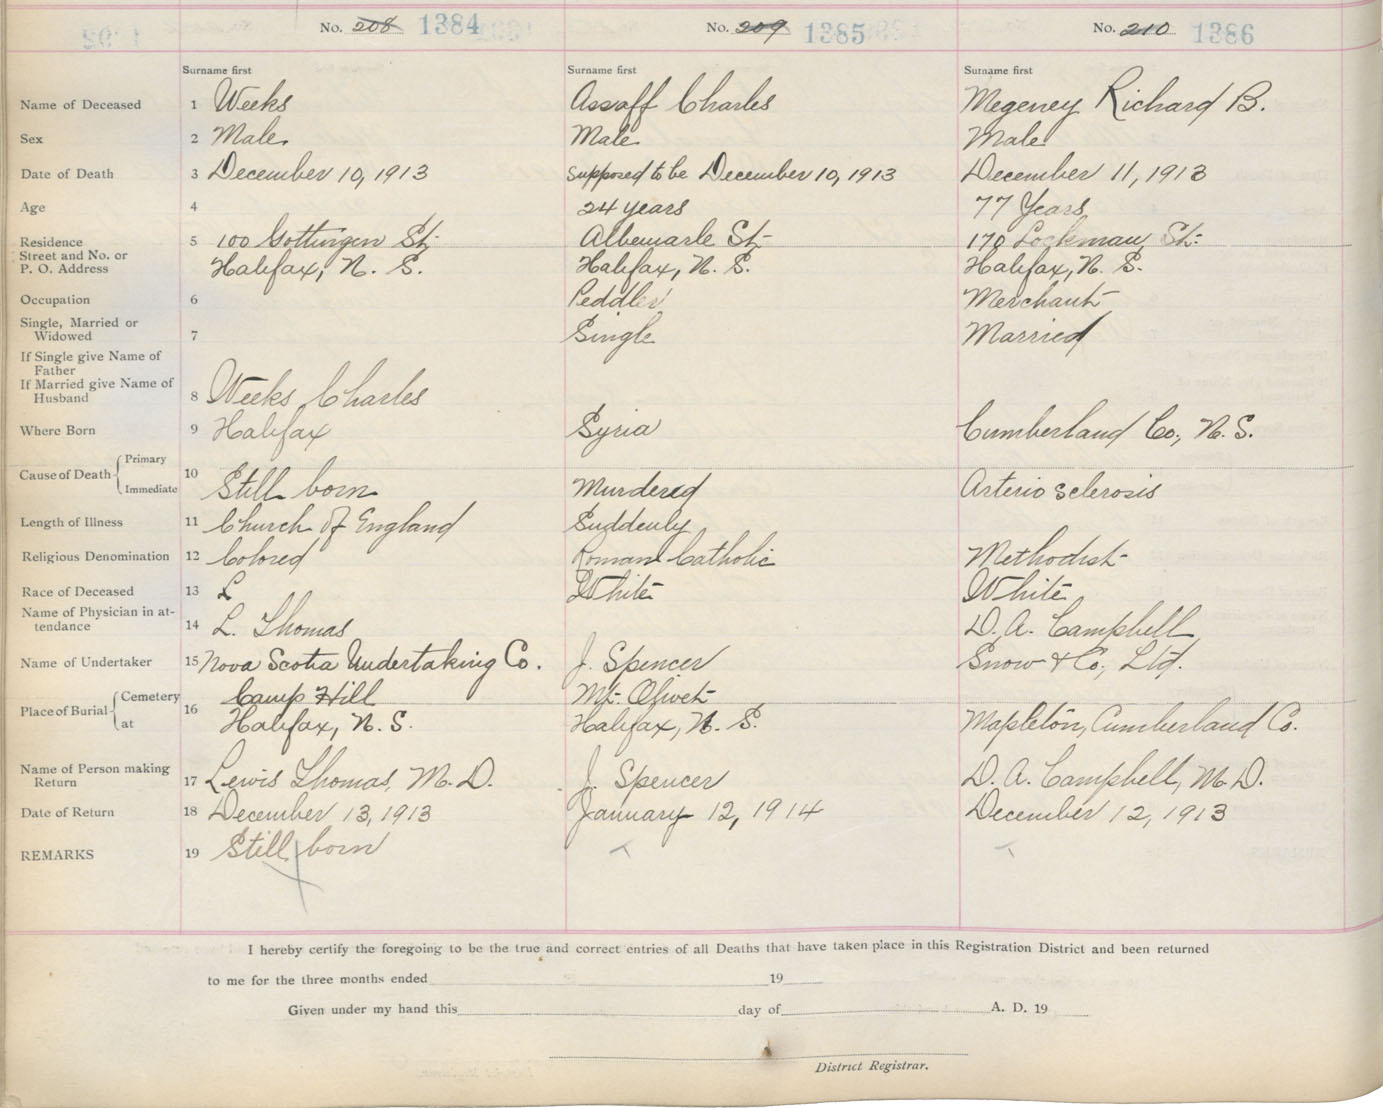 No. 208 1384 No. 209 1385 No. 210 1386
Surname first Surname first Surname first
Name of Deceased 1 Weeks Assaff Charles Megeney Richard B.
Sex 2 Male. Male Male
Date of Death 3 December 10, 1913 Supposed to be December 10, 1913 December 11, 1913
Age 4 24 years 77 Years
Residence 5 100 Gottingen St. Albemarle St. 170 Lockman St.
Street and No. or
P. O. Address Halifax, N. S. Halifax, N. S. Halifax, N. S.
Occupation 6 Peddler Merchant
Single, Married or
Widowed 7 Single Married
If Single give Name of
Father
If Married give Name of
Husband 8 Weeks Charles
Where Born 9 Halifax Syria Cumberland Co., N. S.
Primary
Cause of Death 10
Immediate Still born Murdered Arterio Sclerosis
Length of Illness 11 Church of England Suddenly
Religious Denomination 12 Colored Roman Catholic Methodist
Race of Deceased 13 L White White
Name of Physician in at-
tendance 14 L. Thomas D. A. Campbell
Name of Undertaker 15 Nova Scotia Undertaking Co. J. Spencer Snow & Co., Ltd.
Cemetery Camp Hill Mt. Olivet
Place of Burial 16
at Halifax, N. S. Halifax, N. S. Mapleton, Cumberland Co.
Name of Person making
Return 17 Lewis Thomas, M. D. J. Spencer D. A. Campbell, M. D.
Date of Return 18 December 13, 1913 January 12, 1914 December 12, 1913
REMARKS 19 Still born
I hereby certify the foregoing to be the true and correct entries of all Deaths that have taken place in this Registration District and been returned
to me for the three months ended 19
Given under my hand this day of A. D. 19
District Registrar.